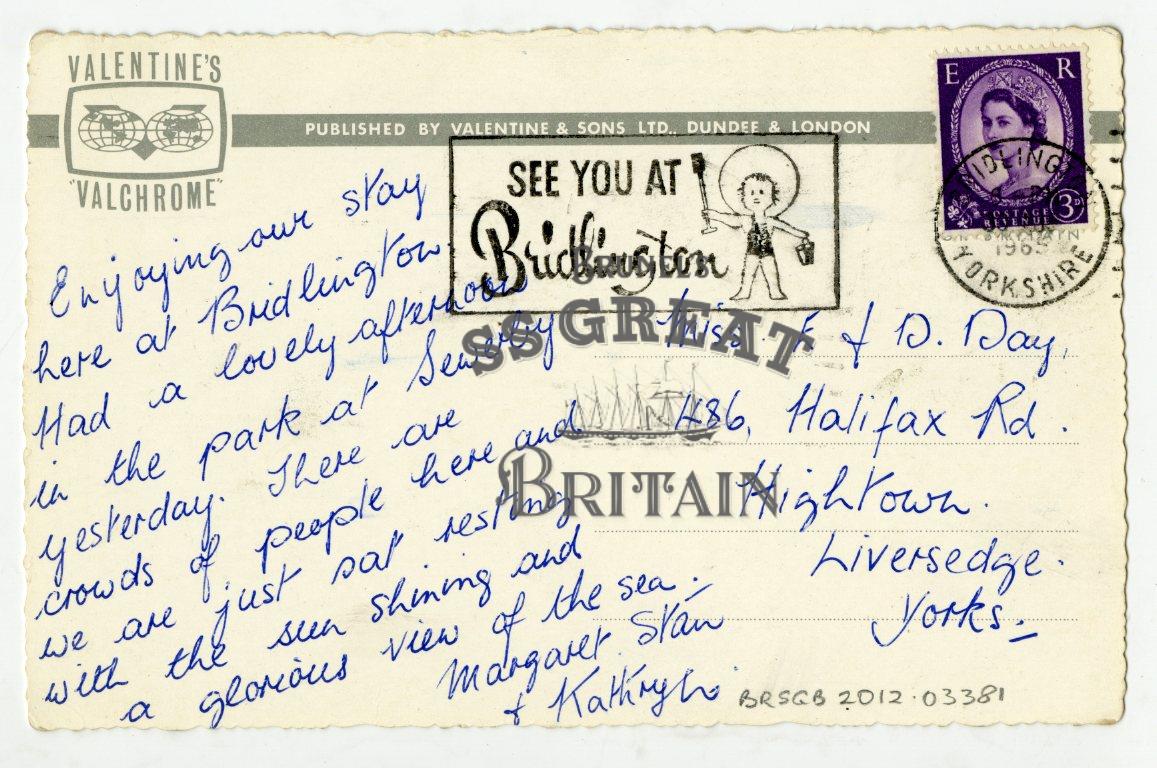 VALENTINE'S
"VALCHROME"
PUBLISHED BY VALENTINE & SONS LTD., DUNDEE & LONDON
SEE YOU AT
Bridlington
E R
POSTAGE
REVENUE
3D
YORKSHIRE
Enjoying our stay
here at Bridlington.
Had a lovely afternoon
in the park at Sewerby
yesterday. There are
crowds of people here and
we are just sat resting
with the sun shining and
a glorious view of the sea.
Margaret. Stan
& Kathryn.
Miss & D. Day,
486, Halifax Rd.
Hightown.
Liversedge.
Yorks.
BRUNEL'S
SS GREAT
BRITAIN
BRSGB 2012.03381